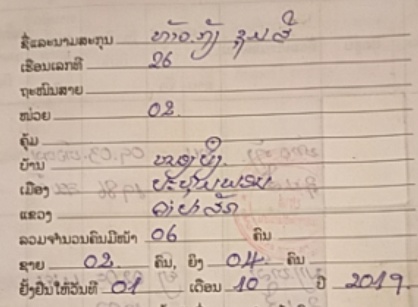 ຊື່ແລະນາມສະກຸນ ທ້າວ
ເຮືອນເລກທີ 26
ຖະໜົນສາຍ
ໜ່ວຍ 02
ຄຸ້ມ
ບ້ານ
ເມືອງ ປະທຸມພອນ
ແຂວງ ຈຳປາສັກ
ລວມຈຳນວນຄົນມີໜ້າ 06 ຄົນ
ຊາຍ 02 ຄົນ, ຍິງ 04 ຄົນ
ຢັ້ງຢືນໃຫ້ວັນທີ 01 ເດືອນ 10 ປີ 2019